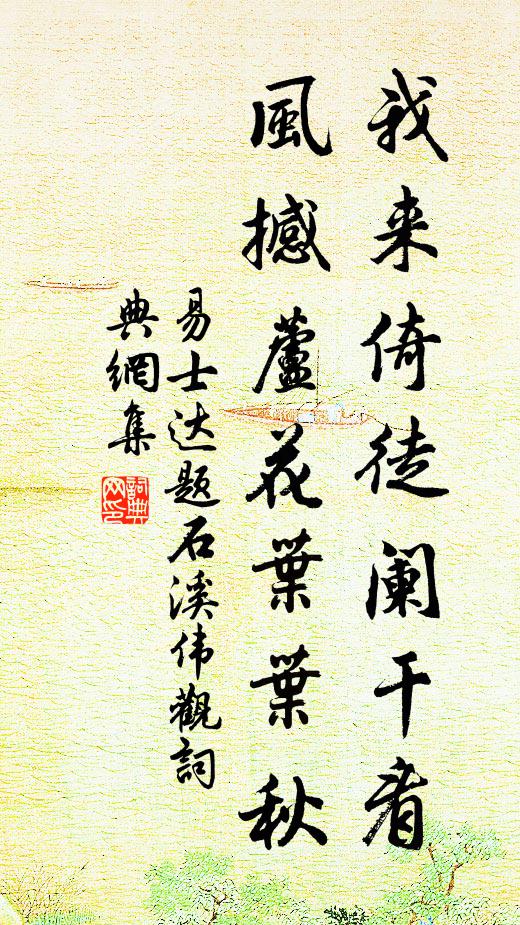 我来倚徒阑干看
風撼蘆花葉葉秋
易士达题石溪伟觀詞
典網集
詞典
网印